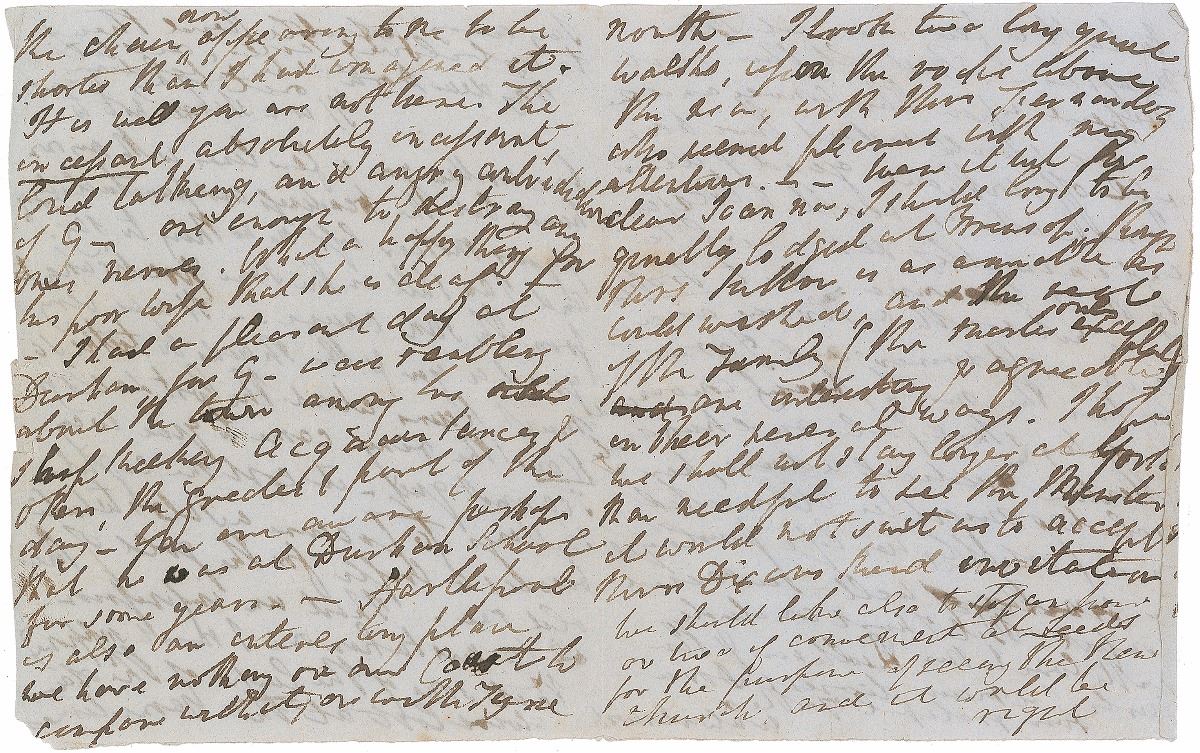 the chair, now appearing to me to be
shorter than I had imagined it.
It is well you are not here. The
incessant absolutely incessant,
loud talking, and angry
of G— are enough to destroy any
ones nerves. What a happy thing for
his poor wife that she is deaf. —
— I had a pleasant day at
Durham for G— was rambling
about the town among his old
meeting acquaintances &
others, the greatest part of the
day — You are aware perhaps
that he was at Durham School
for some years. — Hartlepool
is also an interesting place
we have nothing on our Coast to
compare with it, or with Tyne
north — I took two long quiet
walks, upon the rocks above
the sea, with Mrs
who seemed pleased with my
attentions. — — Were it but for
dear I should long to be
quietly lodged at
Miss is as amiable as
could wished, and the rest
of the Family (the males only excepted)
are interesting & agreeable
in their several ways. I hope
we shall not stay longer at York
than needful to see the Minster
it would not suit us to accept
Mrs Dixons kind invitation
we should like also to stop an hour
or two if convenient at Leeds
for the purpose of seeing the New
Church, and it would be
right